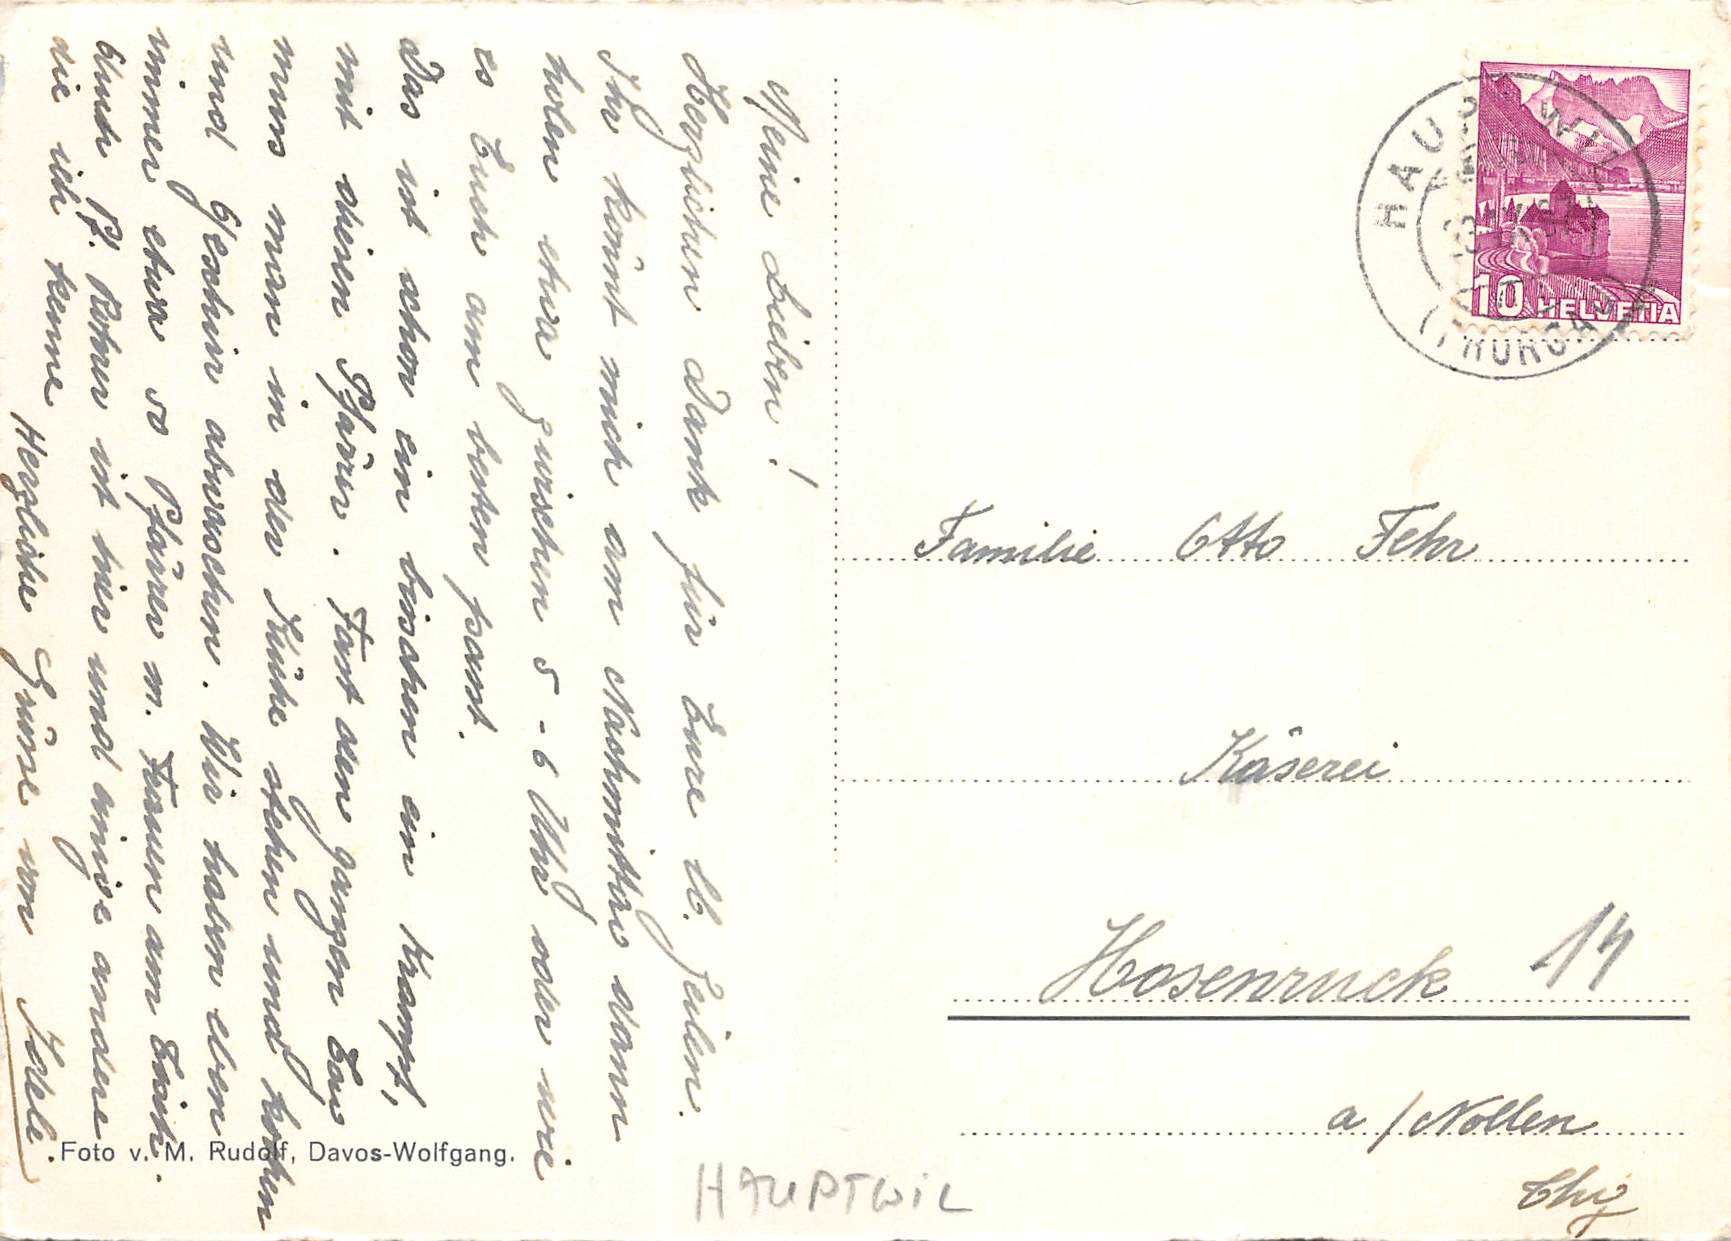 Meine Lieben!
Herzlichen Dank für Eure lb. Zeilen.
Ihr könnt mich am Nachmittag dann
holen etwa zwischen 5-6 Uhr oder wie
es Euch am besten passt.
Das ist schon ein bisschen ein Krampf,
mit diesen Pfärrer. Fast den ganzen Tag
muss man in der Küche stehen und kochen
und Geschirr abwaschen. Wir haben eben
immer etwa 50 Pfärrer m. Frauen am Tisch.
Auch Pf. Rohner ist hier und einige andere
die ich kenne
Herzliche Grüsse von Idele
Foto v. M. Rudolf, Davos-Wolfgang.
HAUPTWIL
(THURGAU)
10 HELVETIA
Familie Otto Fehr
Käserei
Hosenruck 14
a/Nollen
Thg
HAUPTWIL